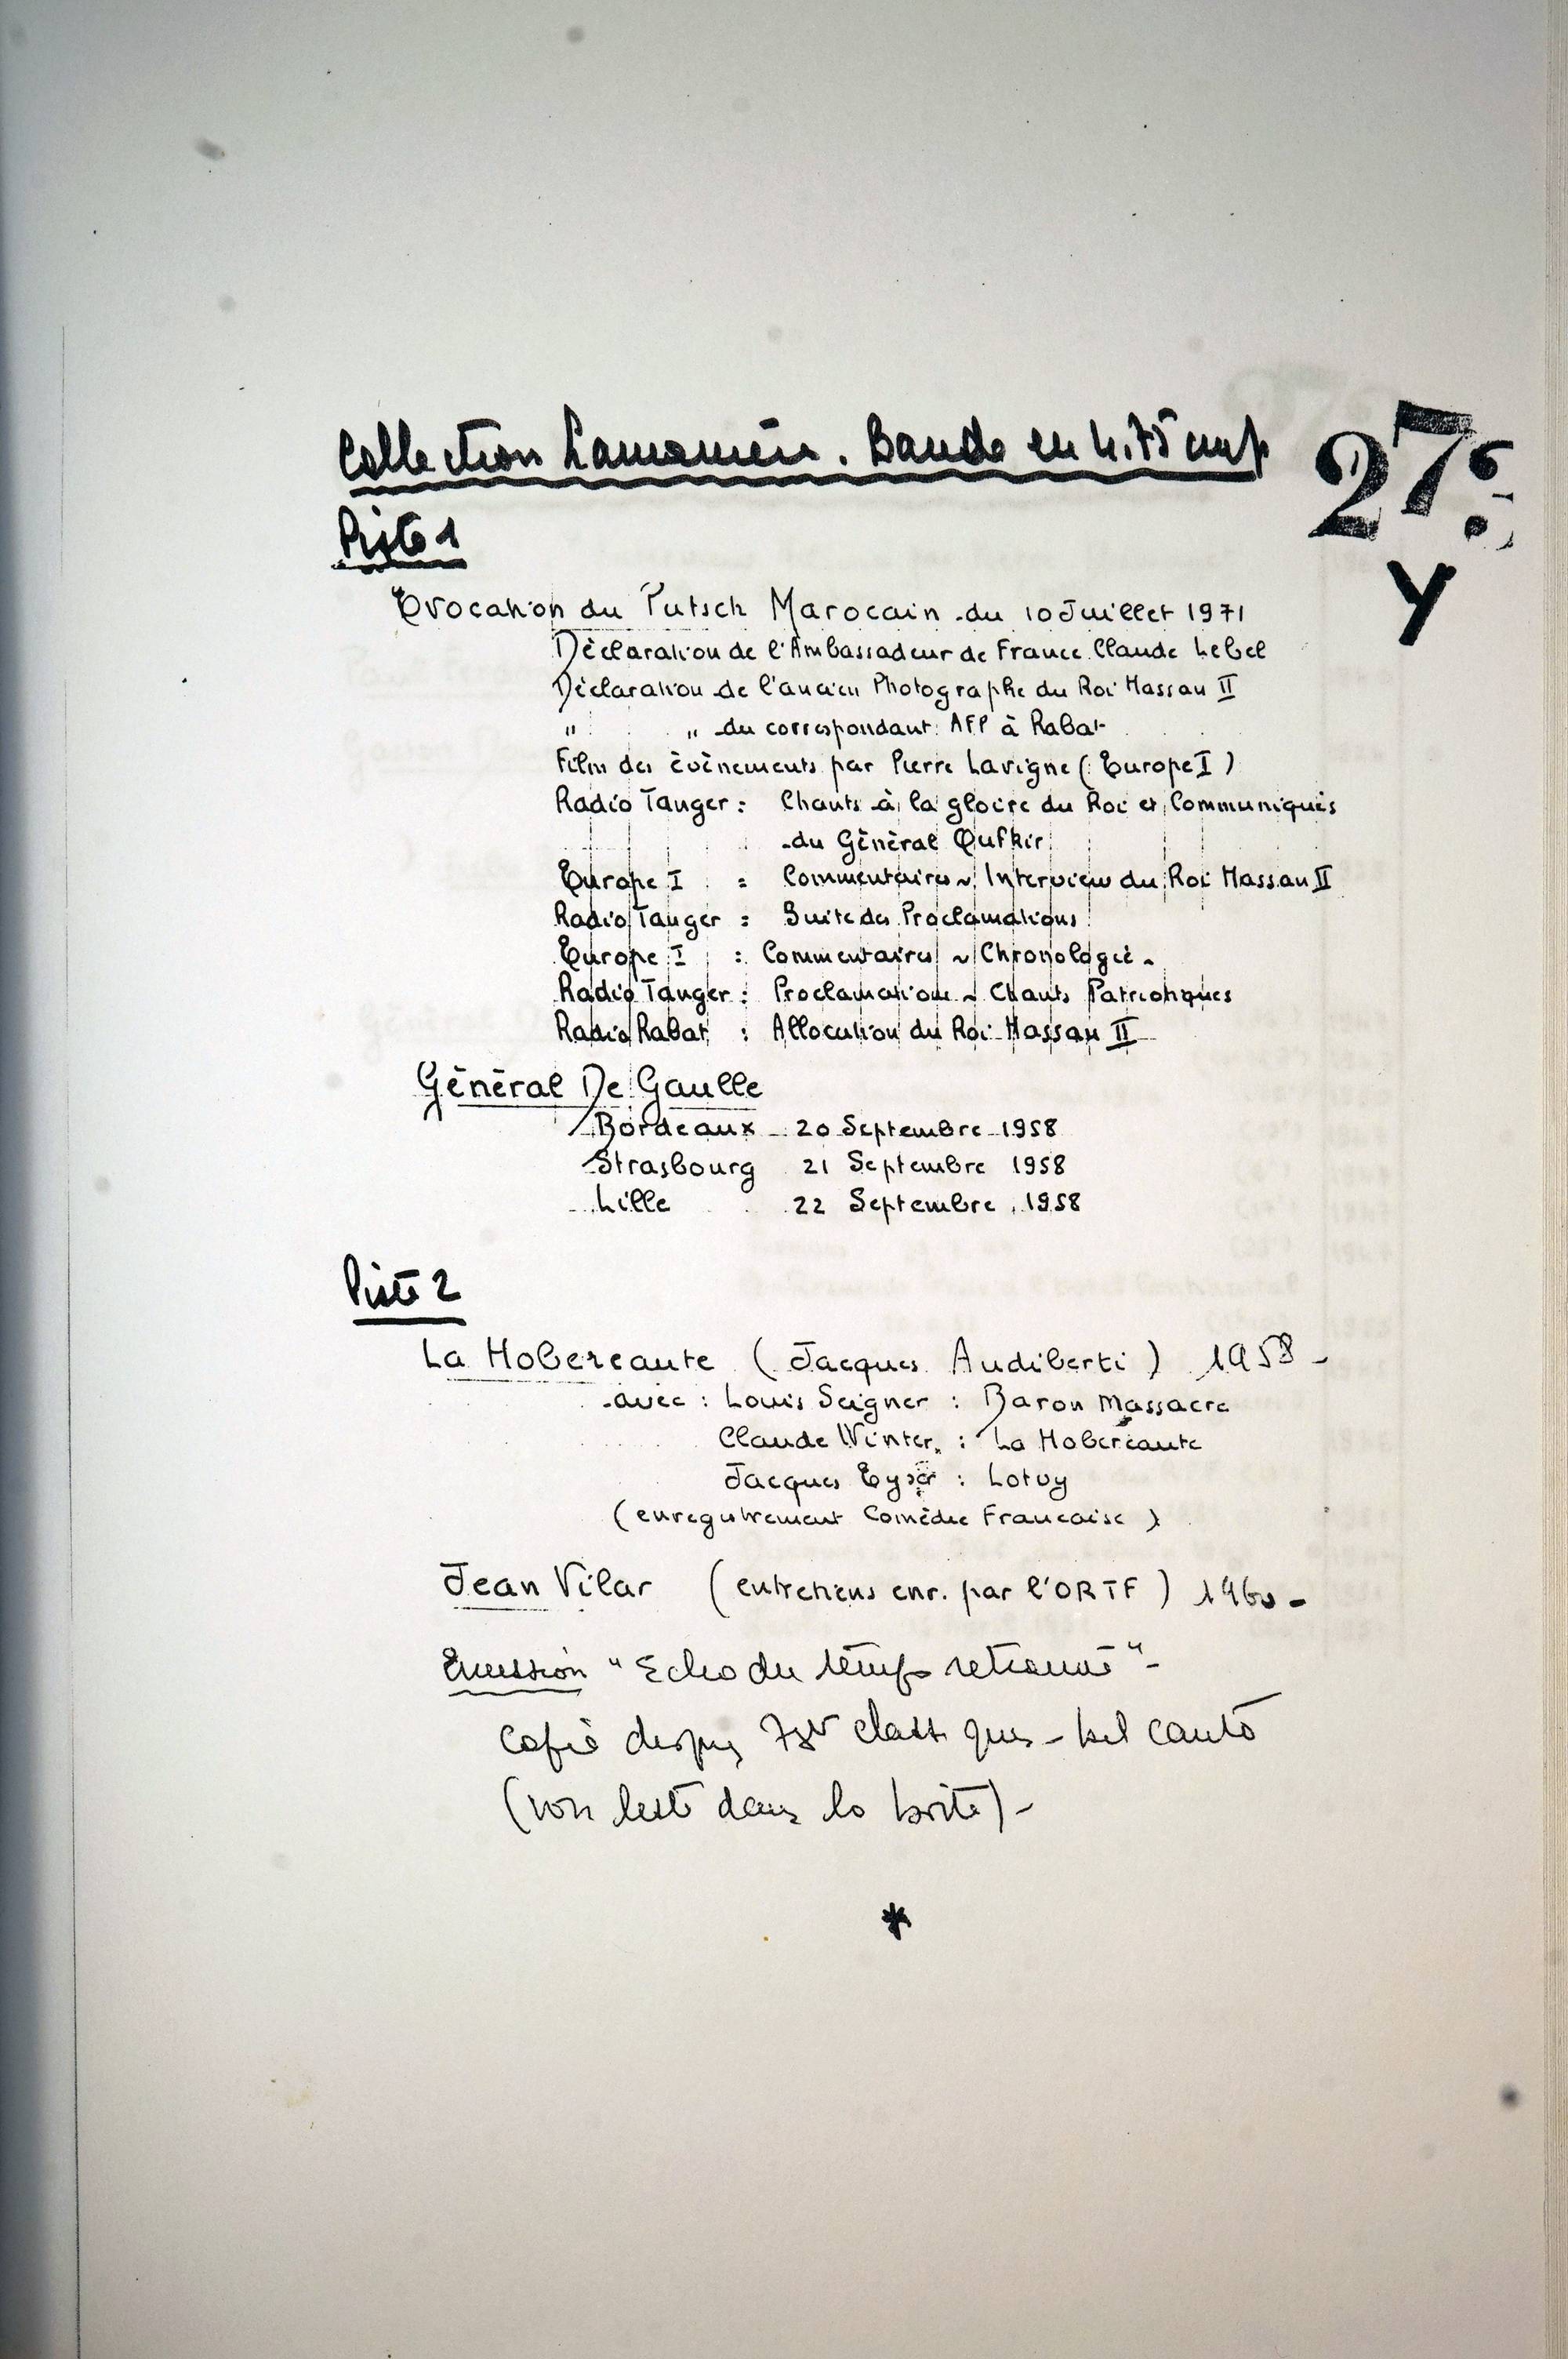 Collection . Bande en 4.75 cm/s
27
Y
Piste 1
Evocation du Putsch Marocain du 10 Juillet 1971
Déclaration de l'Ambassadeur de France Claude Lebel
Déclaration de l'ancien Photographe du Roi Hassan II
" " du correspondant AFP à Rabat
Film des évènements par Pierre Lavigne (Europe I)
Radio Tanger : Chants à la gloire du Roi et Communiqués
du Général Oufkir
Europe I : Commentaires ~ Interview du Roi Hassan II
Radio Tanger : Suite des Proclamations
Europe I : Commentaires ~ Chronologie -
Radio Tanger : Proclamations ~ Chants Patriotiques
Radio Rabat : Allocution du Roi Hassan II
Général De Gaulle
Bordeaux 20 Septembre 1958
Strasbourg 21 Septembre 1958
Lille 22 Septembre 1958
Piste 2
La Hobereaute (Jacques Audiberti) 1958 -
avec : Louis Seigner : Baron Massacre
Claude Winter : La Hobereaute
Jacques Eyser : Lotvy
(enregistrement Comédie Francaise)
Jean Vilar (entretiens enr. par l'ORTF) 1960 -
Emission "Echo du temps retrouvé" -
Copié depuis 78t classiques - bel canto
(non listé dans la boite) -
*